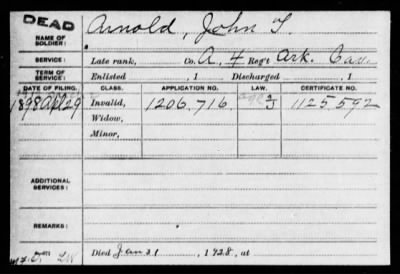 DEAD
NAME OF SOLDIER: Arnold, John T.
SERVICE: Late rank, Co. A, 4 Reg't Ark. Cav.
TERM OF SERVICE: Enlisted , 1 Discharged , 1
DATE OF FILING. CLASS. APPLICATION NO. LAW. CERTIFICATE NO.
1898 Apl 29 Invalid, 1206,716 1125,592
Widow,
Minor,
ADDITIONAL SERVICES:
REMARKS:
Died Jan 31 , 1928, at